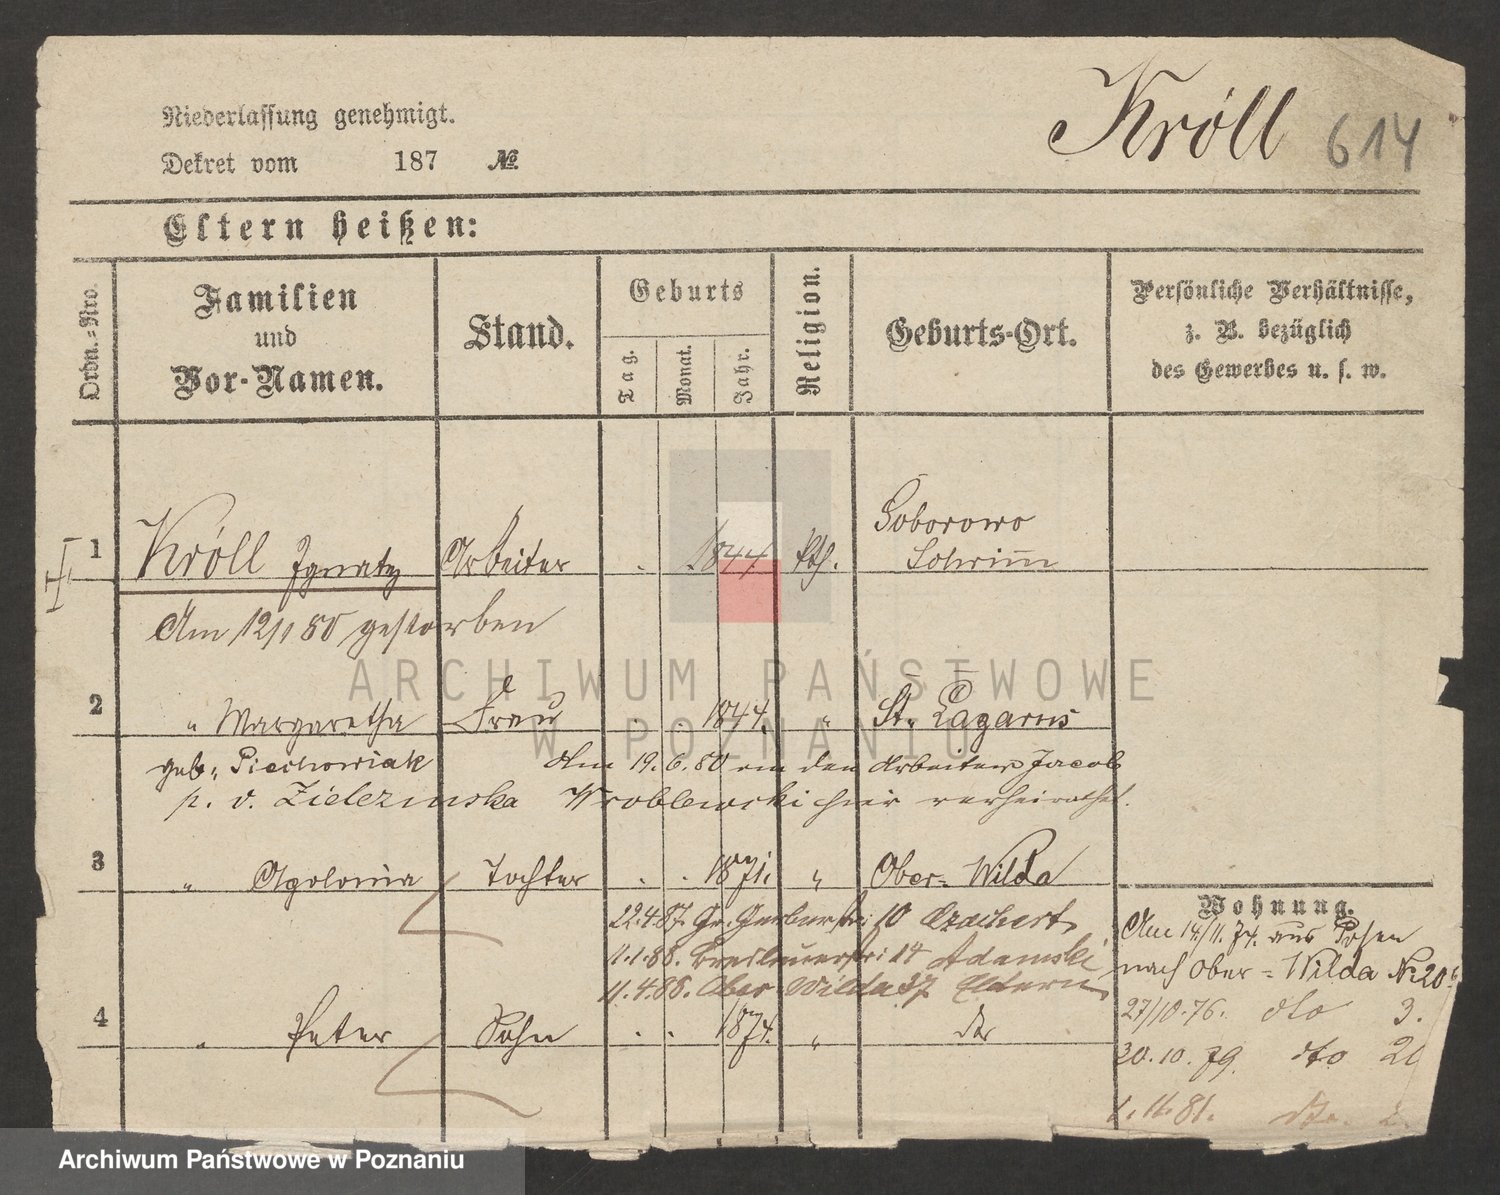 Niederlassung genehmigt.
Dekret vom 187 №
Króll 614
Eltern heißen:
Ordn.=Nro.
Familien
und
Vor-Namen.
Stand.
Geburts
Tag.
Monat.
Jahr.
Religion.
Geburts-Ort.
Persönliche Verhältnisse,
z. B. bezüglich
des Gewerbes u. s. w.
1 Króll Ignatz Arbeiter . . 1844. kth. Goborowo
Schrim̄
Am 12/1 80 gestorben
2 " Margaretha Frau . . 1844. " St. Lazarus
geb. Piechowiak Am 19. 6. 80 an den Arbeiter Jacob
p. v. Zielezinska Wroblewski hier verheirathet.
3 " Apolonia Tochter . . 1871. " Ober-Wilda
22.4.87. Gr. Gerberstr: 10
11.1.88. Breslauerstr: 14 Adamski
11.4.88. Ober Wilda 37 Eltern
4 " Peter Sohn . . 1874. " dto
Wohnung.
Am 14./11. 74. aus Posen
nach Ober-Wilda No 20
27/10.76. dto 3.
30.10.79. dto
1.11.81. dto.
ARCHIWUM PAŃSTWOWE
W POZNANIU
Archiwum Państwowe w Poznaniu